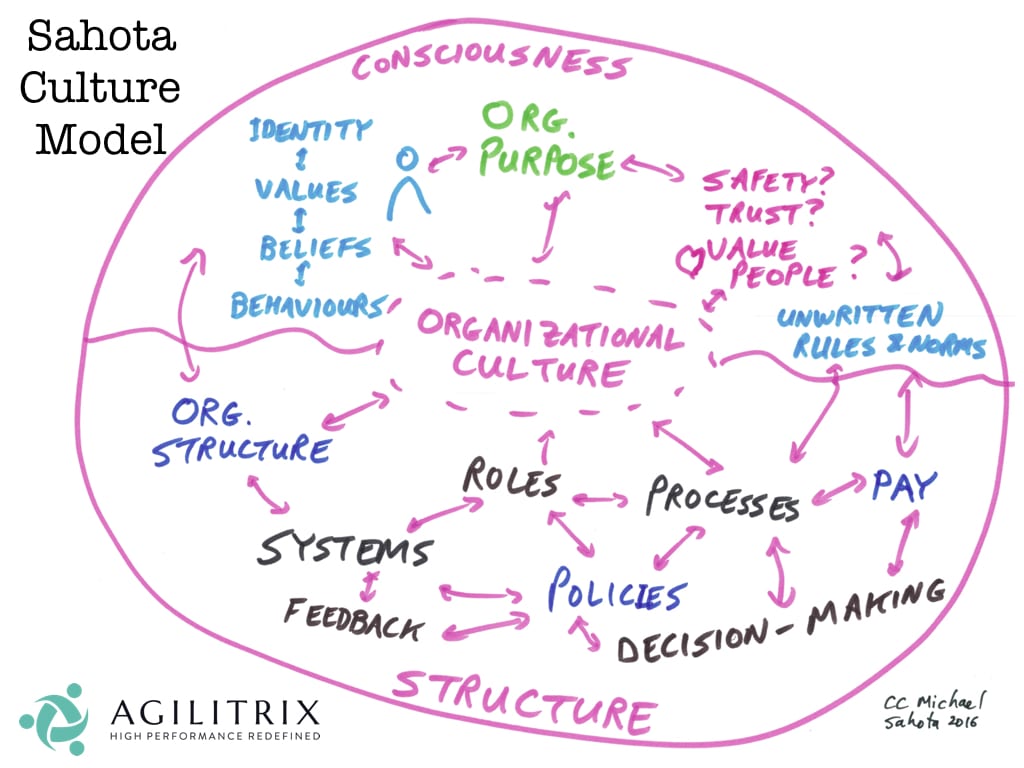 Sahota
Culture
Model
CONSCIOUSNESS
IDENTITY
VALUES
BELIEFS
BEHAVIOURS
ORG.
PURPOSE
SAFETY?
TRUST?
VALUE
PEOPLE?
UNWRITTEN
RULES & NORMS
ORGANIZATIONAL
CULTURE
ORG.
STRUCTURE
ROLES
PROCESSES
PAY
SYSTEMS
FEEDBACK
POLICIES
DECISION-MAKING
STRUCTURE
AGILITRIX
HIGH PERFORMANCE REDEFINED
CC Michael
Sahota 2016